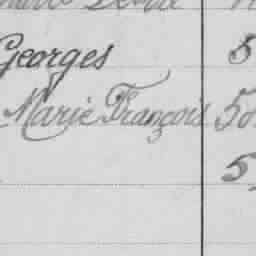 Georges 5
Marie François 50
5